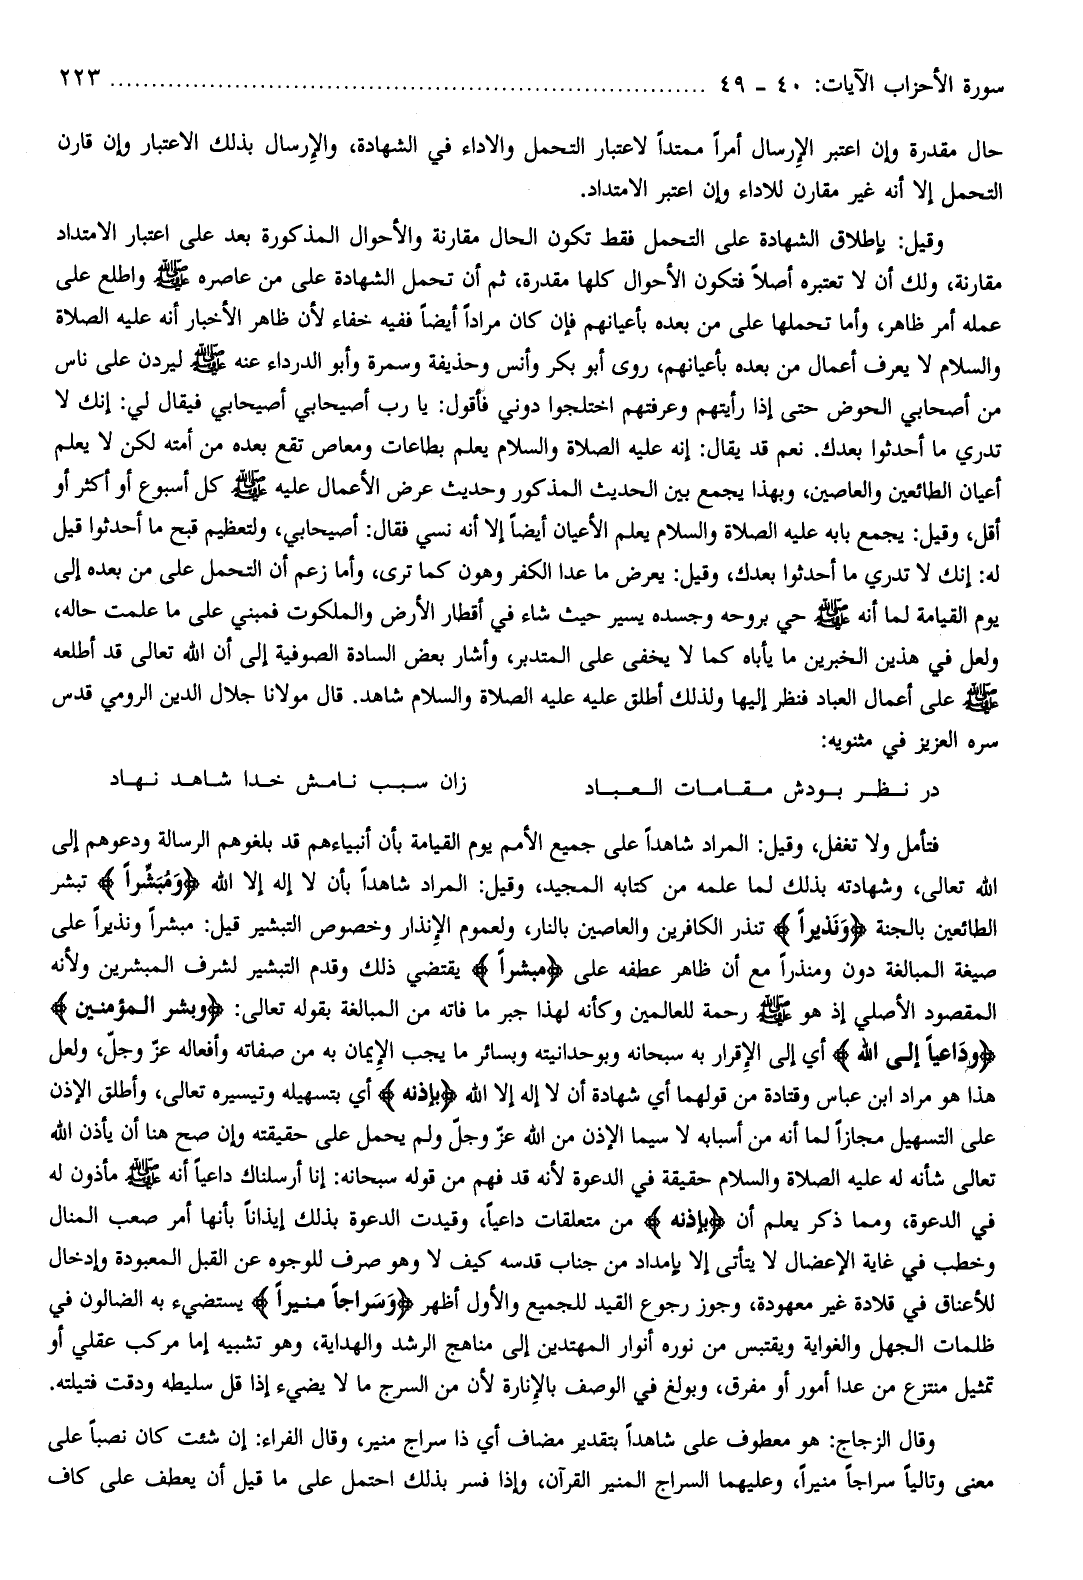 سورة الأحزاب الآيات: ٤٠ ـ ٤٩ ........................................................................ ٢٢٣
حال مقدرة وإن اعتبر الإرسال أمراً ممتداً لاعتبار التحمل والاداء في الشهادة، والإرسال بذلك الاعتبار وإن قارن
التحمل إلا أنه غير مقارن للاداء وإن اعتبر الامتداد.
وقيل: بإطلاق الشهادة على التحمل فقط تكون الحال مقارنة والأحوال المذكورة بعد على اعتبار الامتداد
مقارنة، ولك أن لا تعتبره أصلاً فتكون الأحوال كلها مقدرة، ثم أن تحمل الشهادة على من عاصره ﷺ واطلع على
عمله أمر ظاهر، وأما تحملها على من بعده بأعيانهم فإن كان مراداً أيضاً ففيه خفاء لأن ظاهر الأخبار أنه عليه الصلاة
والسلام لا يعرف أعمال من بعده بأعيانهم، روى أبو بكر وأنس وحذيفة وسمرة وأبو الدرداء عنه ﷺ ليردن على ناس
من أصحابي الحوض حتى إذا رأيتهم وعرفتهم اختلجوا دوني فأقول: يا رب أصيحابي أصيحابي فيقال لي: إنك لا
تدري ما أحدثوا بعدك. نعم قد يقال: إنه عليه الصلاة والسلام يعلم بطاعات ومعاص تقع بعده من أمته لكن لا يعلم
أعيان الطائعين والعاصين، وبهذا يجمع بين الحديث المذكور وحديث عرض الأعمال عليه ﷺ كل أسبوع أو أكثر أو
أقل، وقيل: يجمع بابه عليه الصلاة والسلام يعلم الأعيان أيضاً إلا أنه نسي فقال: أصيحابي، ولتعظيم قبح ما أحدثوا قيل
له: إنك لا تدري ما أحدثوا بعدك، وقيل: يعرض ما عدا الكفر وهون كما ترى، وأما زعم أن التحمل على من بعده إلى
يوم القيامة لما أنه ﷺ حي بروحه وجسده يسير حيث شاء في أقطار الأرض والملكوت فمبني على ما علمت حاله،
ولعل في هذين الخبرين ما يأباه كما لا يخفى على المتدبر، وأشار بعض السادة الصوفية إلى أن الله تعالى قد أطلعه
ﷺ على أعمال العباد فنظر إليها ولذلك أطلق عليه عليه الصلاة والسلام شاهد. قال مولانا جلال الدين الرومي قدس
سره العزيز في مثنويه:
در نـظـر بـودش مـقـامـات الـعـبـاد    زان سـبـب نـامـش خـدا شـاهـد نـهـاد
فتأمل ولا تغفل، وقيل: المراد شاهداً على جميع الأمم يوم القيامة بأن أنبياءهم قد بلغوهم الرسالة ودعوهم إلى
الله تعالى، وشهادته بذلك لما علمه من كتابه المجيد، وقيل: المراد شاهداً بأن لا إله إلا الله ﴿وَمُبَشِّراً﴾ تبشر
الطائعين بالجنة ﴿وَنَذيراً﴾ تنذر الكافرين والعاصين بالنار، ولعموم الإنذار وخصوص التبشير قيل: مبشراً ونذيراً على
صيغة المبالغة دون ومنذراً مع أن ظاهر عطفه على ﴿مبشراً﴾ يقتضي ذلك وقدم التبشير لشرف المبشرين ولأنه
المقصود الأصلي إذ هو ﷺ رحمة للعالمين وكأنه لهذا جبر ما فاته من المبالغة بقوله تعالى: ﴿وبشر المؤمنين﴾
﴿ودَاعياً إلى الله﴾ أي إلى الإقرار به سبحانه وبوحدانيته وبسائر ما يجب الإيمان به من صفاته وأفعاله عزّ وجلّ، ولعل
هذا هو مراد ابن عباس وقتادة من قولهما أي شهادة أن لا إله إلا الله ﴿بإذنه﴾ أي بتسهيله وتيسيره تعالى، وأطلق الإذن
على التسهيل مجازاً لما أنه من أسبابه لا سيما الإذن من الله عزّ وجلّ ولم يحمل على حقيقته وإن صح هنا أن يأذن الله
تعالى شأنه له عليه الصلاة والسلام حقيقة في الدعوة لأنه قد فهم من قوله سبحانه: إنا أرسلناك داعياً أنه ﷺ مأذون له
في الدعوة، ومما ذكر يعلم أن ﴿بإذنه﴾ من متعلقات داعياً، وقيدت الدعوة بذلك إيذاناً بأنها أمر صعب المنال
وخطب في غاية الإعضال لا يتأتى إلا بإمداد من جناب قدسه كيف لا وهو صرف للوجوه عن القبل المعبودة وإدخال
للأعناق في قلادة غير معهودة، وجوز رجوع القيد للجميع والأول أظهر ﴿وَسَراجاً منيراً﴾ يستضيء به الضالون في
ظلمات الجهل والغواية ويقتبس من نوره أنوار المهتدين إلى مناهج الرشد والهداية، وهو تشبيه إما مركب عقلي أو
تمثيل منتزع من عدا أمور أو مفرق، وبولغ في الوصف بالإنارة لأن من السرج ما لا يضيء إذا قل سليطه ودقت فتيلته.
وقال الزجاج: هو معطوف على شاهداً بتقدير مضاف أي ذا سراج منير، وقال الفراء: إن شئت كان نصباً على
معنى وتالياً سراجاً منيراً، وعليهما السراج المنير القرآن، وإذا فسر بذلك احتمل على ما قيل أن يعطف على كاف